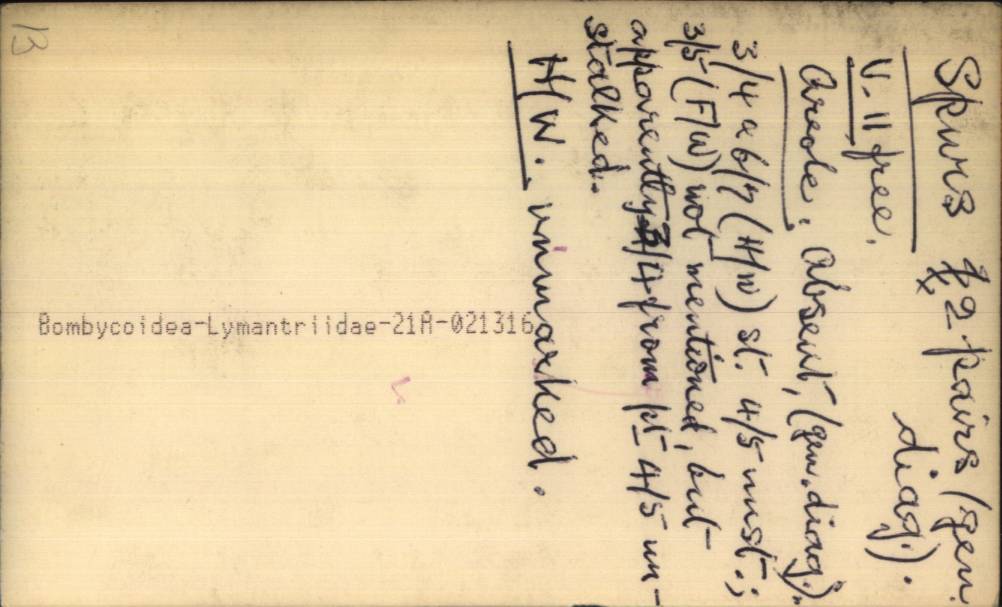 Spurs 2 pairs (gen.
diag.).
V. 11 free.
Areole. Absent, (gen. diag.).
3/4 a 6/7 (H/W) st. 4/5 unst.;
3/5 (F/W) not mentioned, but
apparently 3/4 from pt 4/5 un-
stalked.
H/W. unmarked.
Bombycoidea-Lymantriidae-21A-021316
13